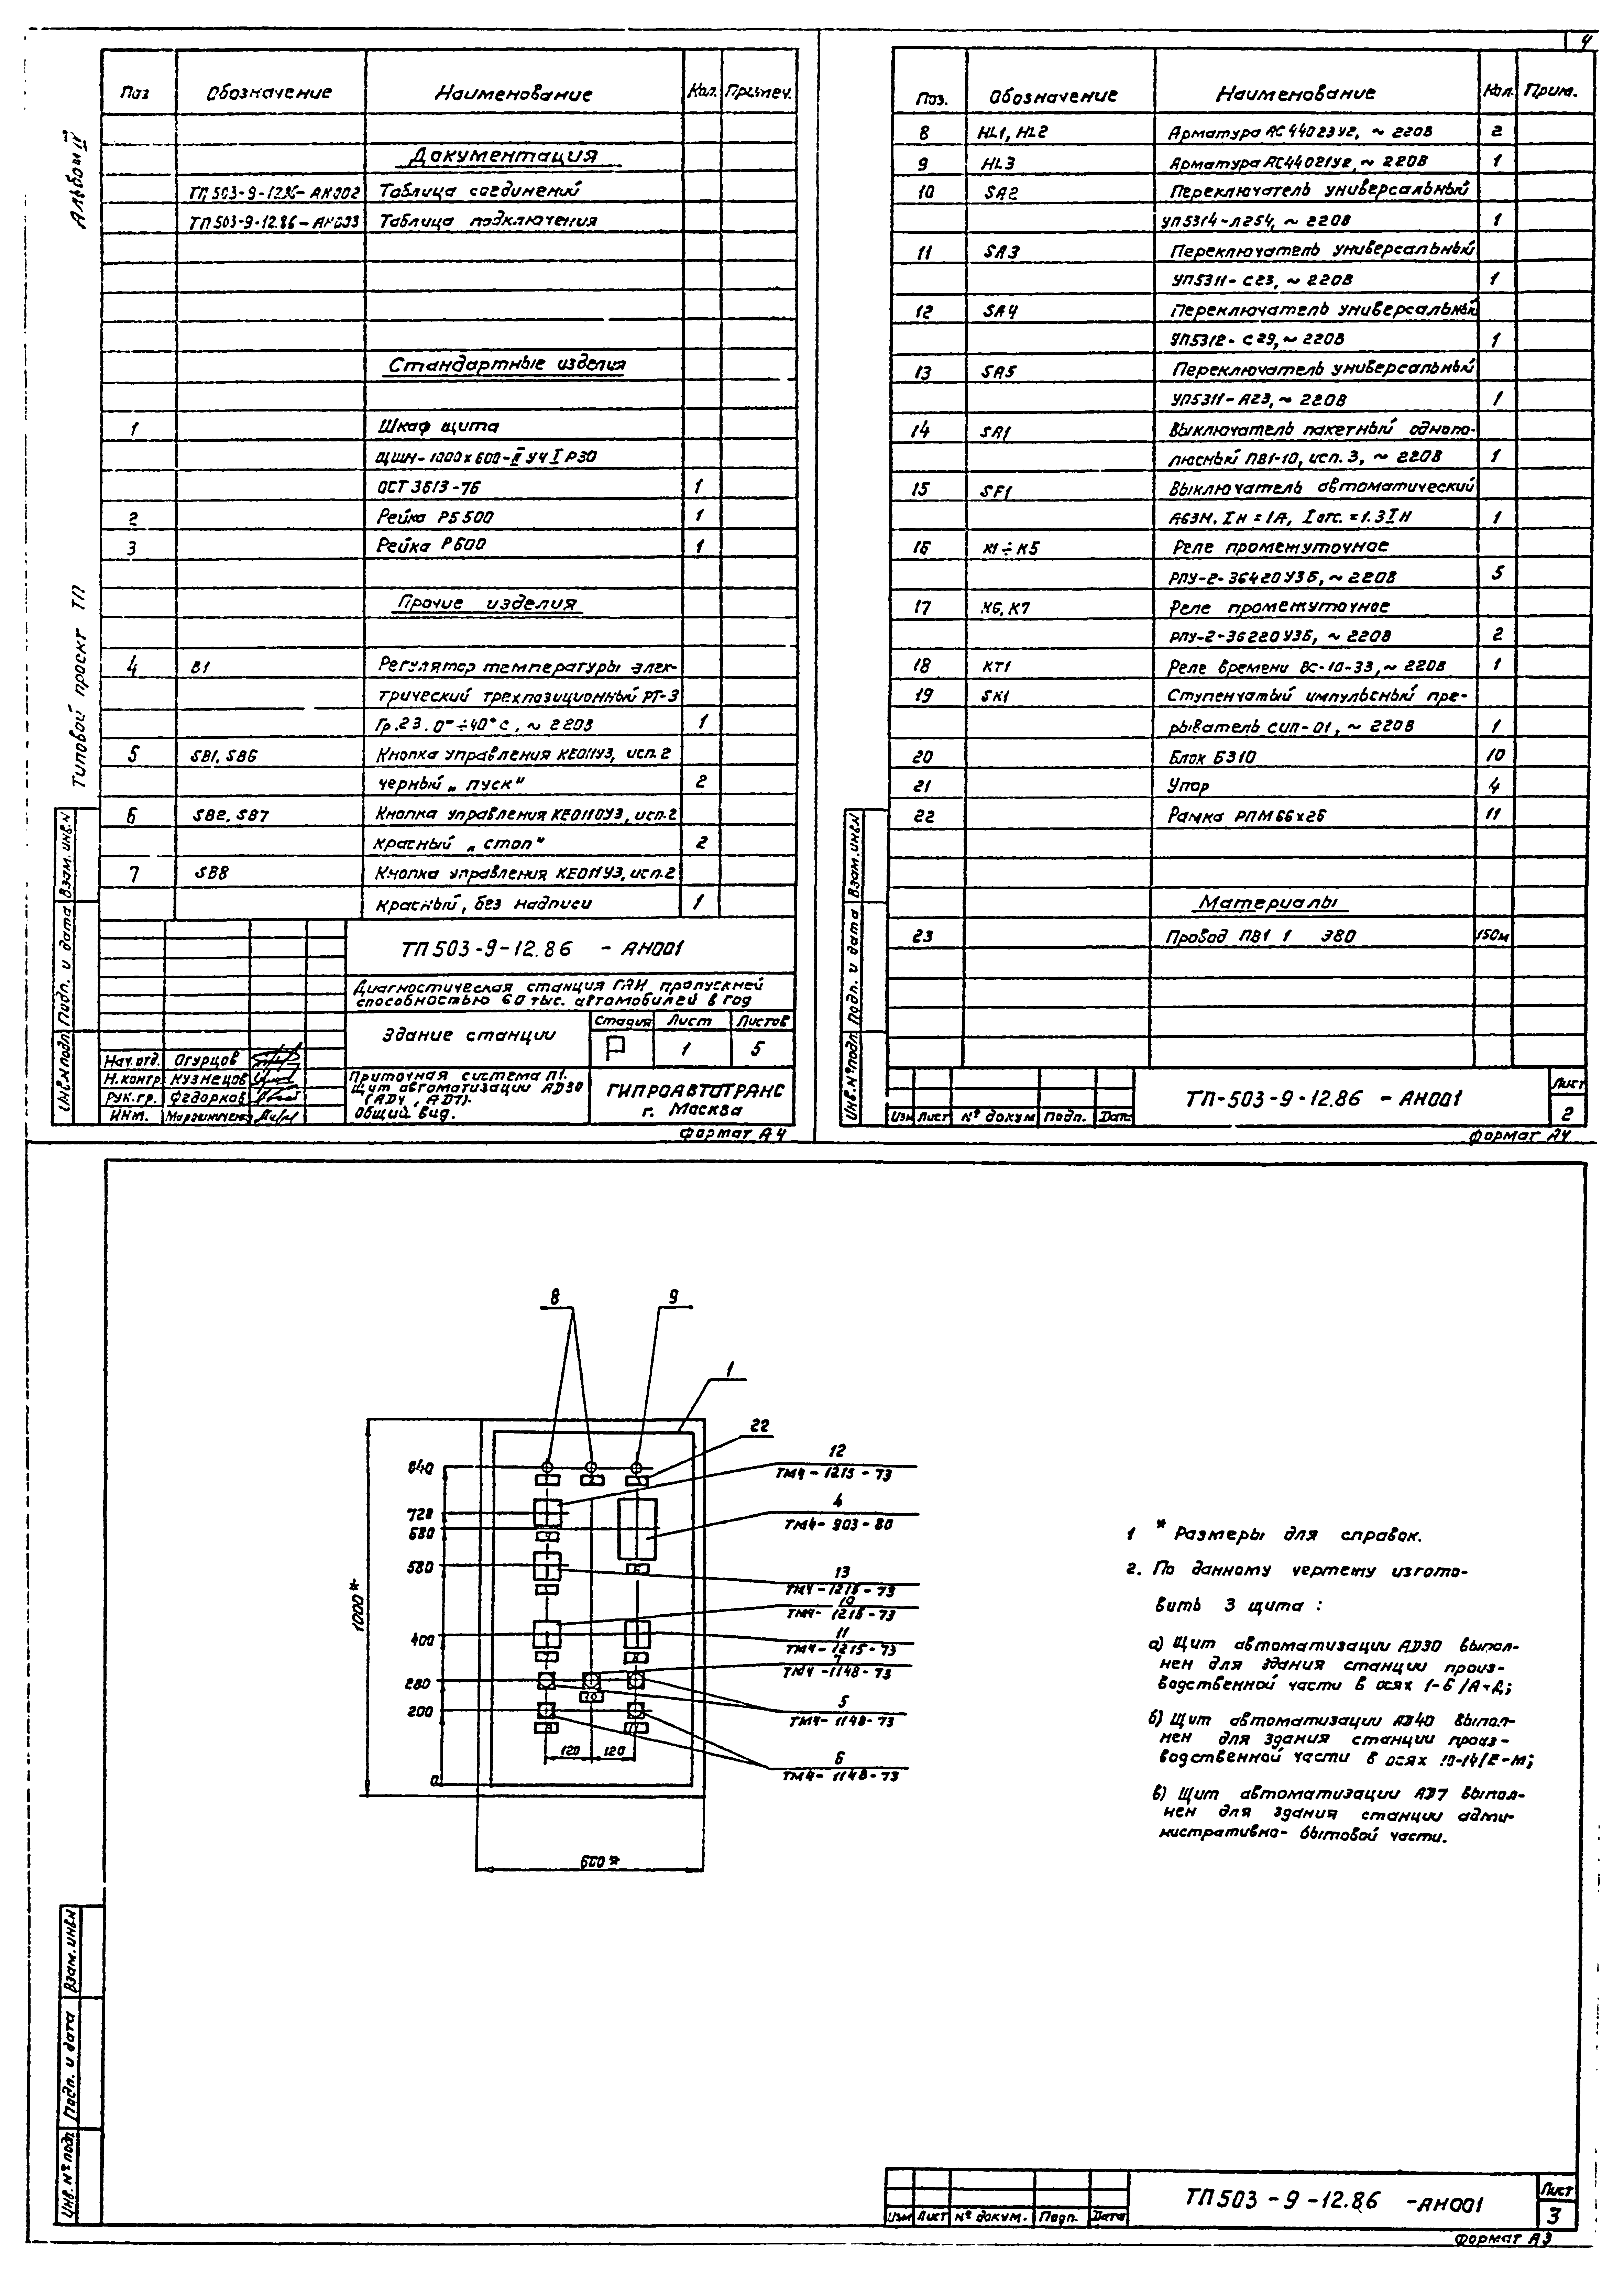 4
Альбом IV
Типовой проект ТП
Поз Обозначение Наименование Кол. Примеч.
Документация
ТП 503-9-12.86-АН002 Таблица соединений
ТП 503-9-12.86-АН003 Таблица подключения
Стандартные изделия
1 Шкаф щита
ЩШМ-1000х600-II УЧ I Р30
ОСТ 3613-76 1
2 Рейка РБ500 1
3 Рейка Р600 1
Прочие изделия
4 B1 Регулятор температуры элек-
трический трехпозиционный РТ-3
Гр.23. 0°÷40°с, ~ 220В 1
5 SB1, SB6 Кнопка управления КЕ011У3, исп.2
черный „пуск" 2
6 SB2, SB7 Кнопка управления КЕ011У3, исп.2
красный „стоп" 2
7 SB8 Кнопка управления КЕ011У3, исп.2
красный, без надписи 1
ТП 503-9-12.86 - АН001
Диагностическая станция ГАИ пропускной
способностью 60 тыс. автомобилей в год
Здание станции
Стадия Лист Листов
Р 1 5
Нач.отд. Огурцов
Н.контр. Кузнецов
Рук.гр. Федорков
Инж.
Приточная система П1.
Щит автоматизации АD30
(АD4, АD7).
Общий вид.
ГИПРОАВТОТРАНС
г. Москва
Формат А4
Инв.№подл. Подп. и дата Взам.инв.N
Поз. Обозначение Наименование Кол. Прим.
8 HL1, HL2 Арматура АС44023У2, ~ 220В 2
9 HL3 Арматура АС44021У2, ~ 220В 1
10 SA2 Переключатель универсальный
УП5314-Л254, ~ 220В 1
11 SA3 Переключатель универсальный
УП5311-С23, ~ 220В 1
12 SA4 Переключатель универсальный
УП5312-С29, ~ 220В 1
13 SA5 Переключатель универсальный
УП5311-А23, ~ 220В 1
14 SA1 Выключатель пакетный однопо-
люсный ПВ1-10, исп. 3, ~ 220В 1
15 SF1 Выключатель автоматический
А63М. Iн = 1А, Iотс. = 1.3Iн 1
16 К1÷К5 Реле промежуточное
РПУ-2-36420У3Б, ~ 220В 5
17 К6, К7 Реле промежуточное
РПУ-2-36220У3Б, ~ 220В 2
18 КТ1 Реле времени ВС-10-33, ~ 220В 1
19 SK1 Ступенчатый импульсный пре-
рыватель СИП-01, ~ 220В 1
20 Блок Б310 10
21 Упор 4
22 Рамка РПМ66х26 11
Материалы
23 Провод ПВ1 1 380 150м
Изм Лист № докум Подп. Дата
ТП-503-9-12.86 - АН001
Лист
2
Формат А4
Инв.№подл. Подп. и дата Взам.инв.N
8 9
1
22
12
ТМ4-1215-73
4
ТМ4-903-80
13
ТМ4-1215-73
10
ТМ4-1215-73
11
ТМ4-1215-73
7
ТМ4-1148-73
5
ТМ4-1148-73
6
ТМ4-1148-73
840
720
680
580
400
280
200
0
1000*
120 120
600*
1 * Размеры для справок.
2. По данному чертежу изгото-
вить 3 щита :
а) Щит автоматизации АD30 выпол-
нен для здания станции произ-
водственной части в осях 1-Б/А-Д;
б) Щит автоматизации АD40 выпол-
нен для здания станции произ-
водственной части в осях 10-14/Е-М;
в) Щит автоматизации АD7 выпол-
нен для здания станции адми-
нистративно-бытовой части.
Инв.№подл Подп. и дата Взам.инв.N
Изм Лист № докум. Подп. Дата
ТП 503-9-12.86 -АН001
Лист
3
Формат А3